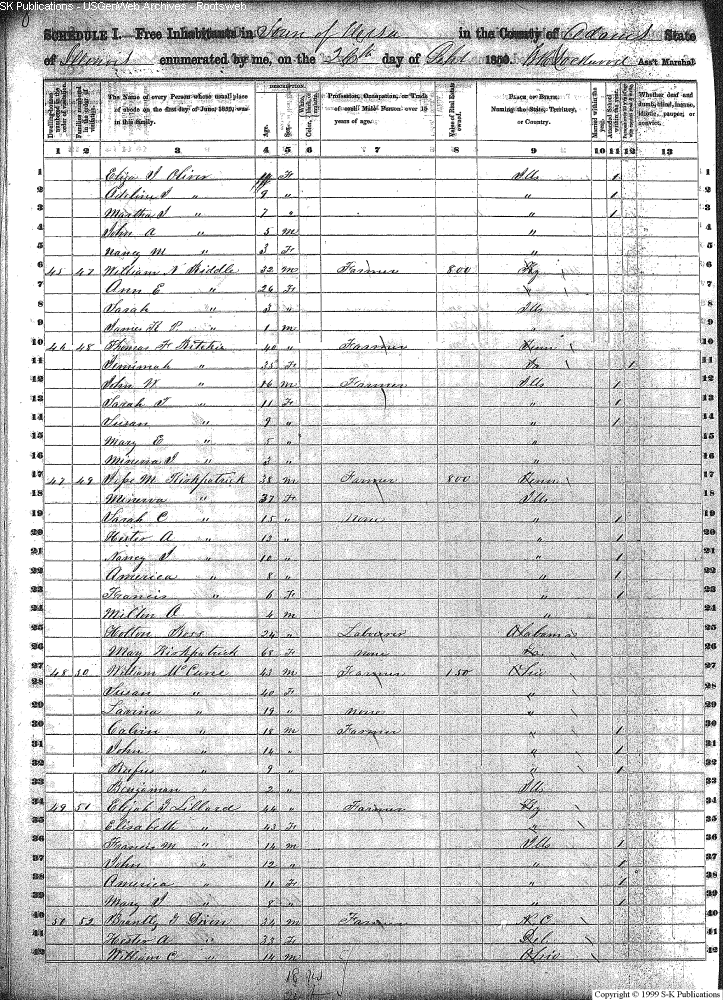 SK Publications - USGenWeb Archives - Rootsweb
SCHEDULE I.—Free Inhabitants in Town of Ursa in the County of Adams State
of Illinois enumerated by me, on the 26th day of Sept 1850. Lockwood Ass't Marshal
Dwelling-houses numbered in the order of visitation.
Families numbered in the order of visitation.
The Name of every Person whose usual place of abode on the first day of June, 1850, was in this family.
DESCRIPTION.
Age.
Sex.
Color,
Profession, Occupation, or Trade of each Male Person over 15 years of age.
Value of Real Estate owned.
PLACE OF BIRTH. Naming the State, Territory, or Country.
Married within the year.
Whether deaf and dumb, blind, insane, idiotic, pauper, or convict.
1 2 3 4 5 6 7 8 9 10 11 12 13
1 Eliza J Oliver F Ills 1 1
2 Adeline J " 9 " " 1 2
3 Martha J " 7 " " 1 3
4 John A " 5 m " 4
5 Nancy M " 3 F " 5
6 45 47 William N Riddle 32 m Farmer 800 Ky 6
7 Ann E " 26 F " 7
8 Sarah " 3 " Ills 8
9 James H P " 1 m " 9
10 46 48 Thomas F Ritchie 40 " Farmer Tenn 10
11 Jemimah " 35 F 1 11
12 John W " 16 m Farmer Ills 1 12
13 Sarah J " 11 F " 1 13
14 Susan " 9 " " 1 14
15 Mary E " 5 " " 15
16 Minerva J " 3 " " 16
17 47 49 M Kirkpatrick 38 m Farmer 800 Tenn 17
18 Minerva " 37 F Ills 18
19 Sarah C " 15 " None " 1 19
20 Hester A " 13 " " 1 20
21 Nancy J " 10 " " 1 21
22 America " 8 " " 1 22
23 Francis " 6 F " 1 23
24 Milton A 4 m " 24
25 Holton Ross 24 " Laborer Alabama 25
26 May Kirkpatrick 68 F None 26
27 48 50 William McCune 43 m Farmer 150 Ohio 27
28 Susan " 40 F " 28
29 Lavina " 19 " None " 29
30 Calvin " 18 m Farmer " 1 30
31 John " 14 " " 1 31
32 Rufus " 9 " " 1 32
33 Benjaman " 2 " Ills 33
34 49 51 Elijah G Lillard 44 " Farmer Ky 34
35 Elisabeth " 43 F " 35
36 Francis M " 14 m Ills 1 36
37 John " 12 " " 1 37
38 America " 11 F " 1 38
39 Mary J " 8 " " 1 39
40 50 52 Brantly J 34 m Farmer N. C 40
41 Hester A " 33 F Del 41
42 William C " 14 m Ohio 42
Copyright © 1999 S-K Publications